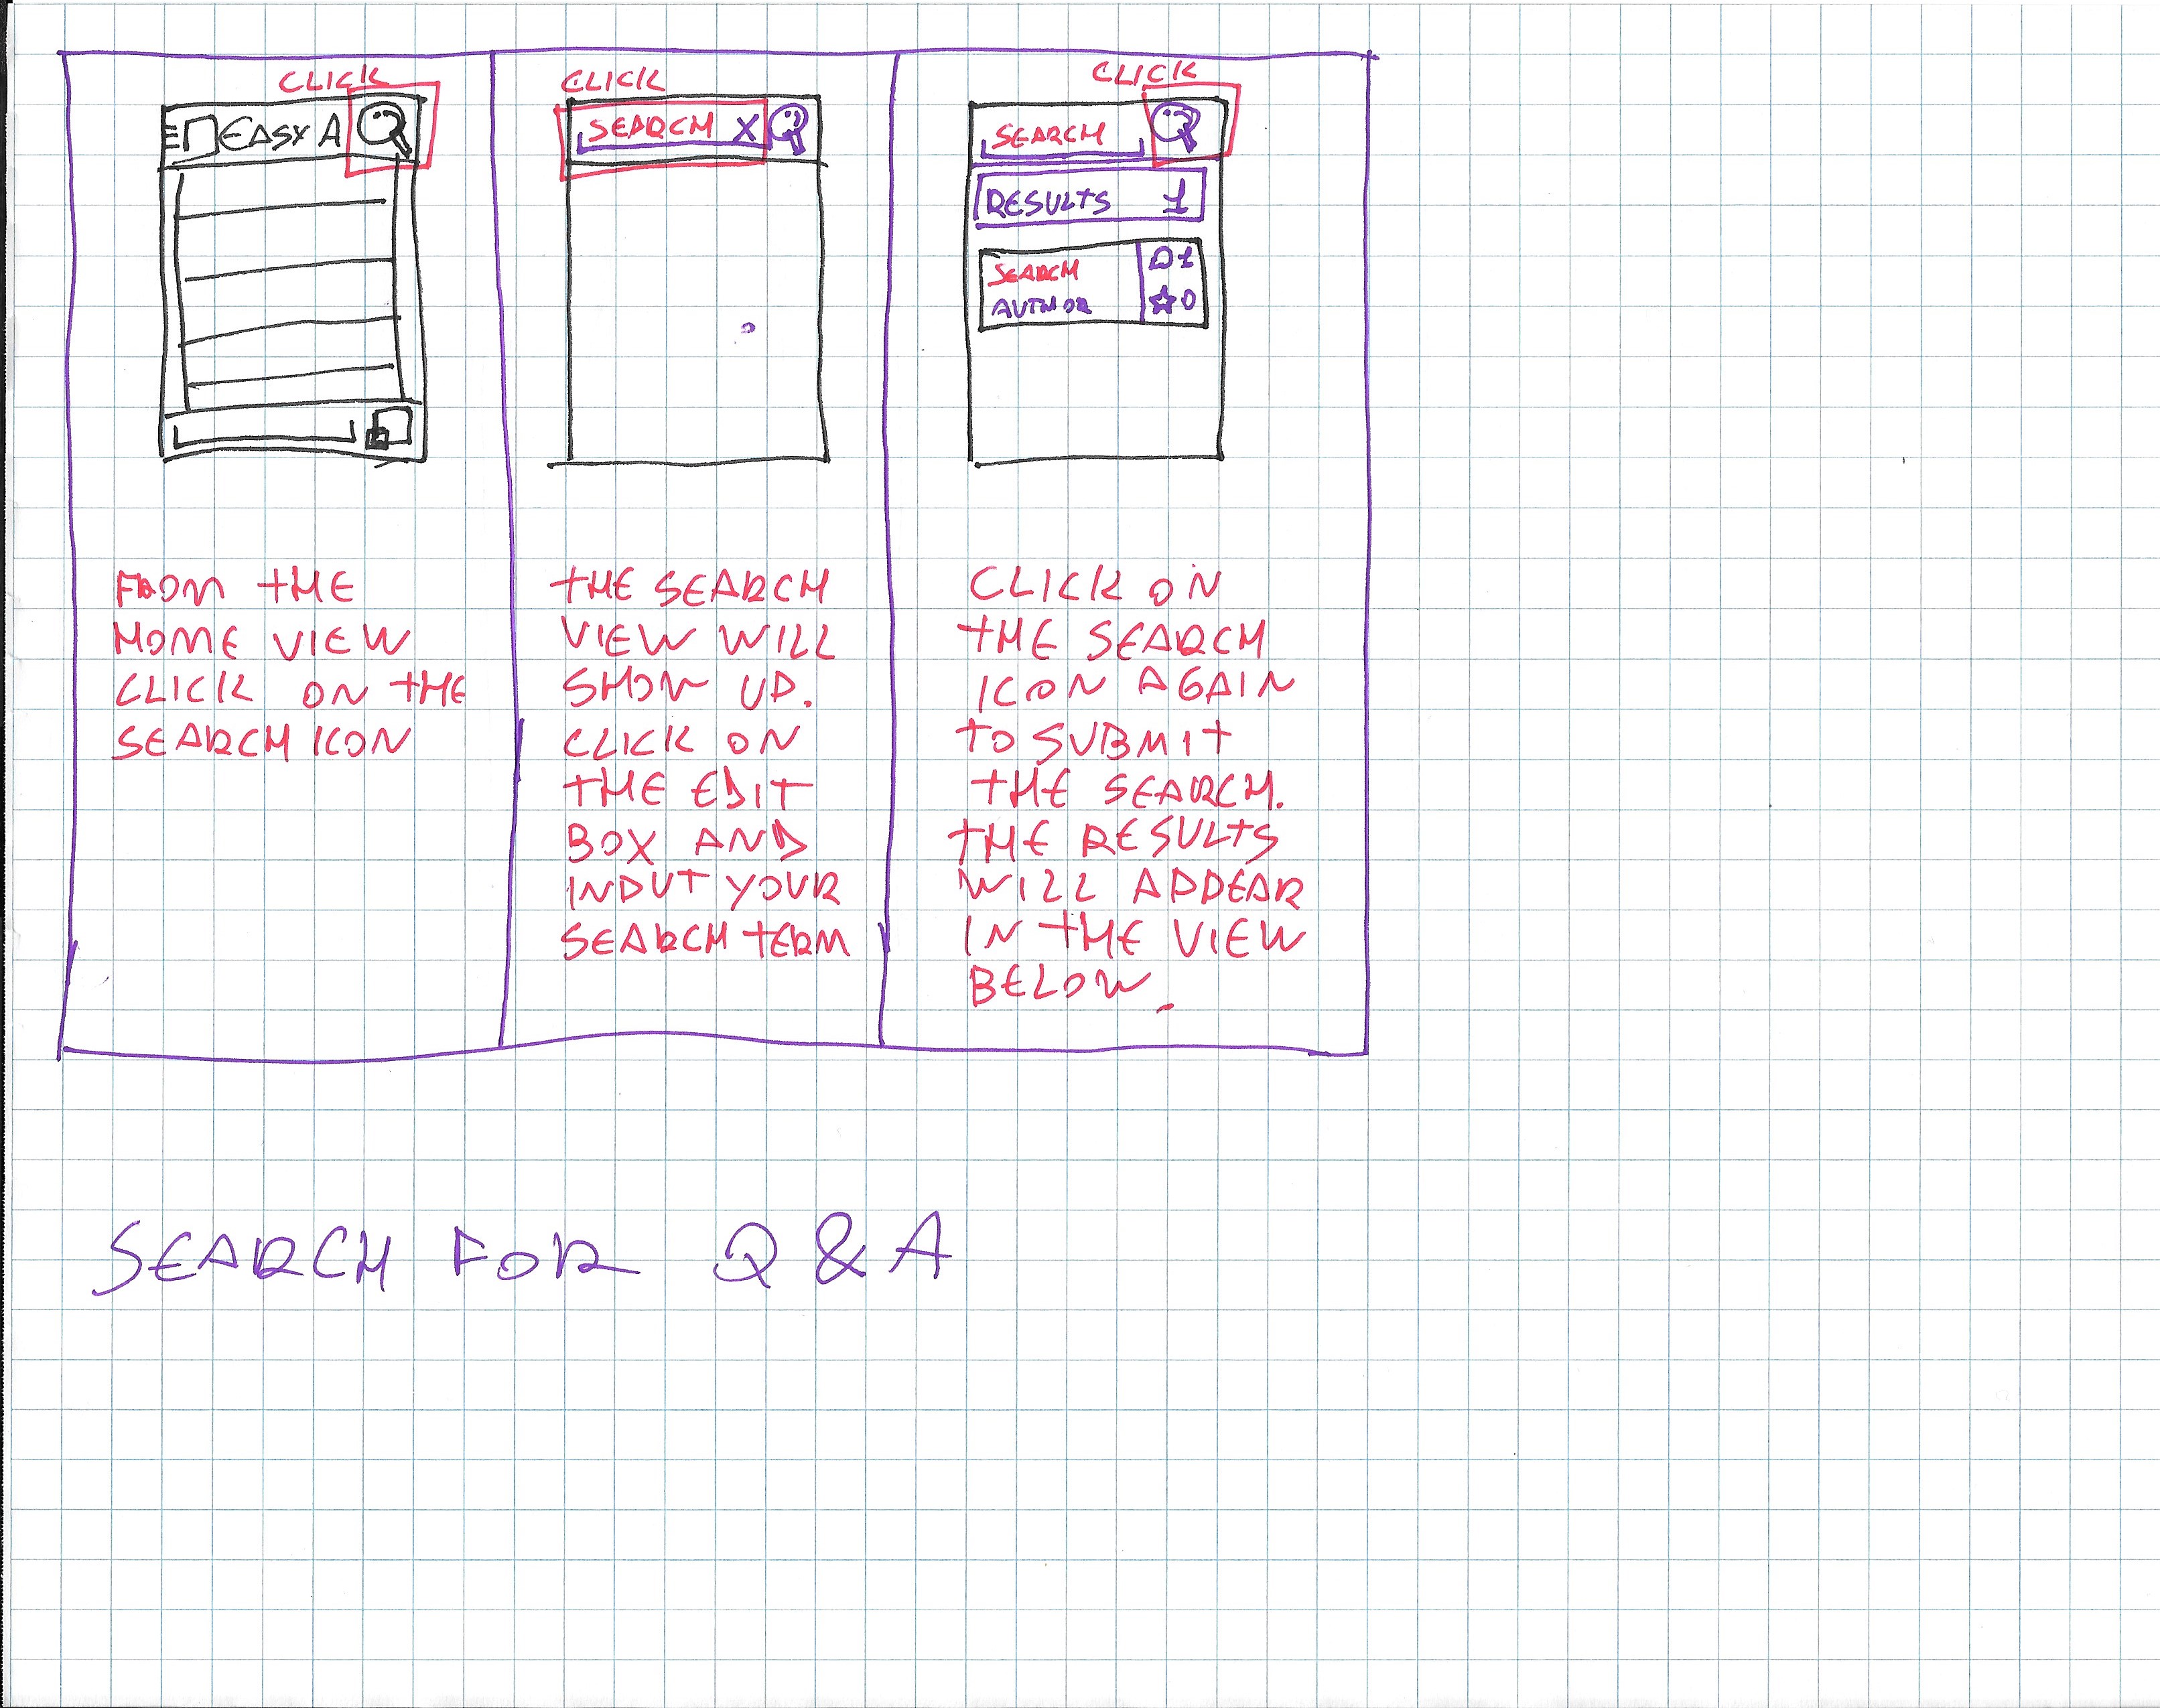 CLICK
EASY A
FROM THE
HOME VIEW
CLICK ON THE
SEARCH ICON
CLICK
SEARCH X
THE SEARCH
VIEW WILL
SHOW UP.
CLICK ON
THE EDIT
BOX AND
INPUT YOUR
SEARCH TERM
CLICK
SEARCH
RESULTS 1
SEARCH 1
AUTHOR 0
CLICK ON
THE SEARCH
ICON AGAIN
TO SUBMIT
THE SEARCH.
THE RESULTS
WILL APPEAR
IN THE VIEW
BELOW.
SEARCH FOR Q & A